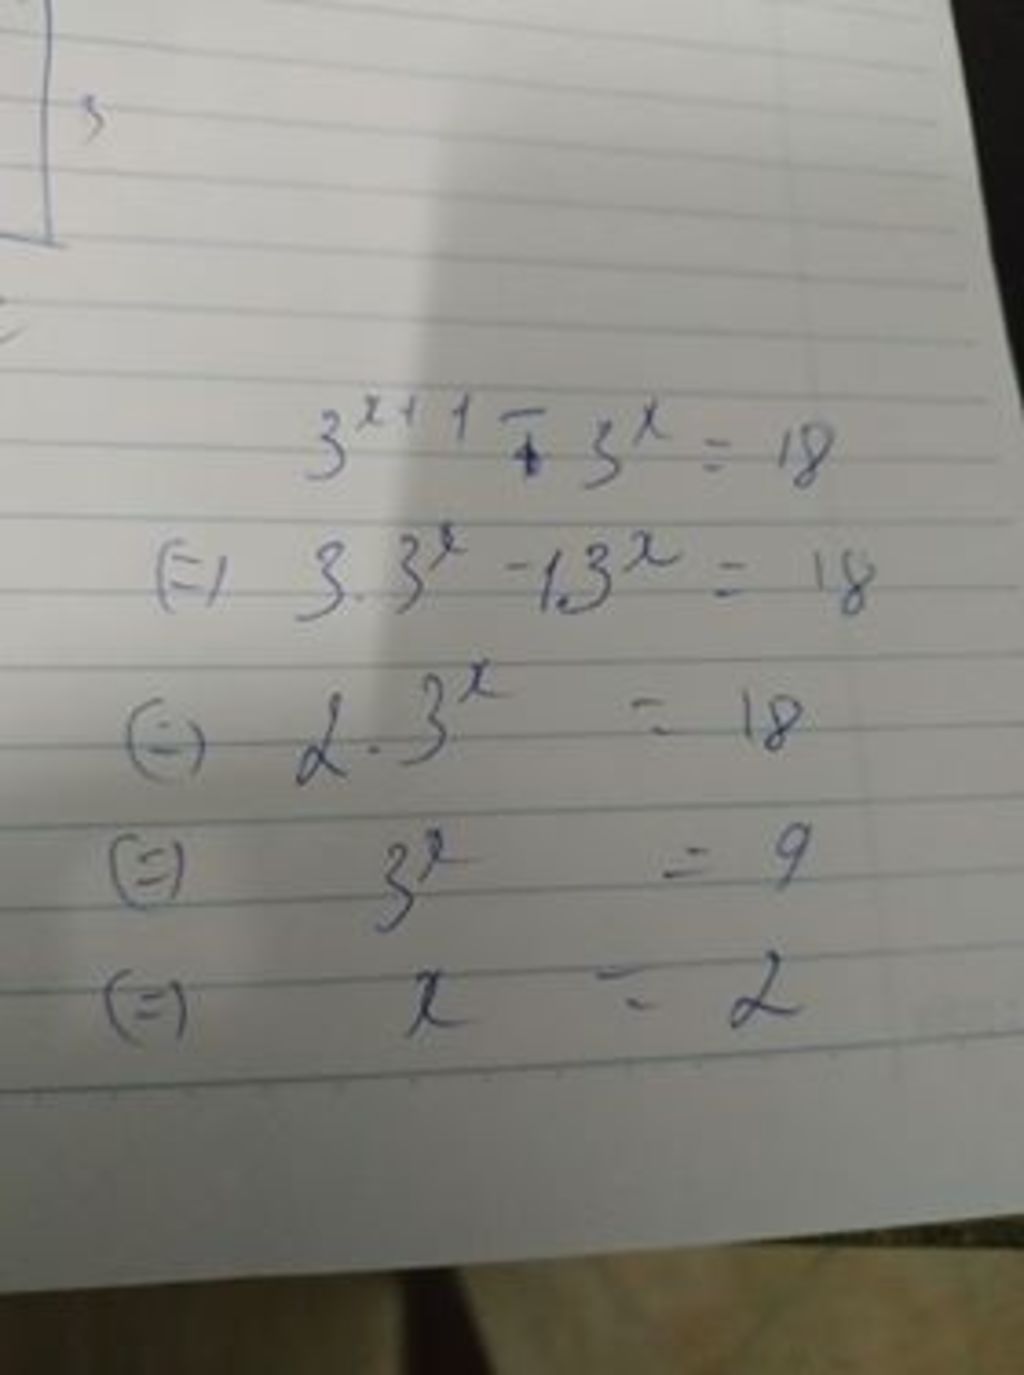 3
3^{x+1} - 3^x = 18
(=) 3.3^x - 1.3^x = 18
(=) 2.3^x = 18
(=) 3^x = 9
(=) x = 2